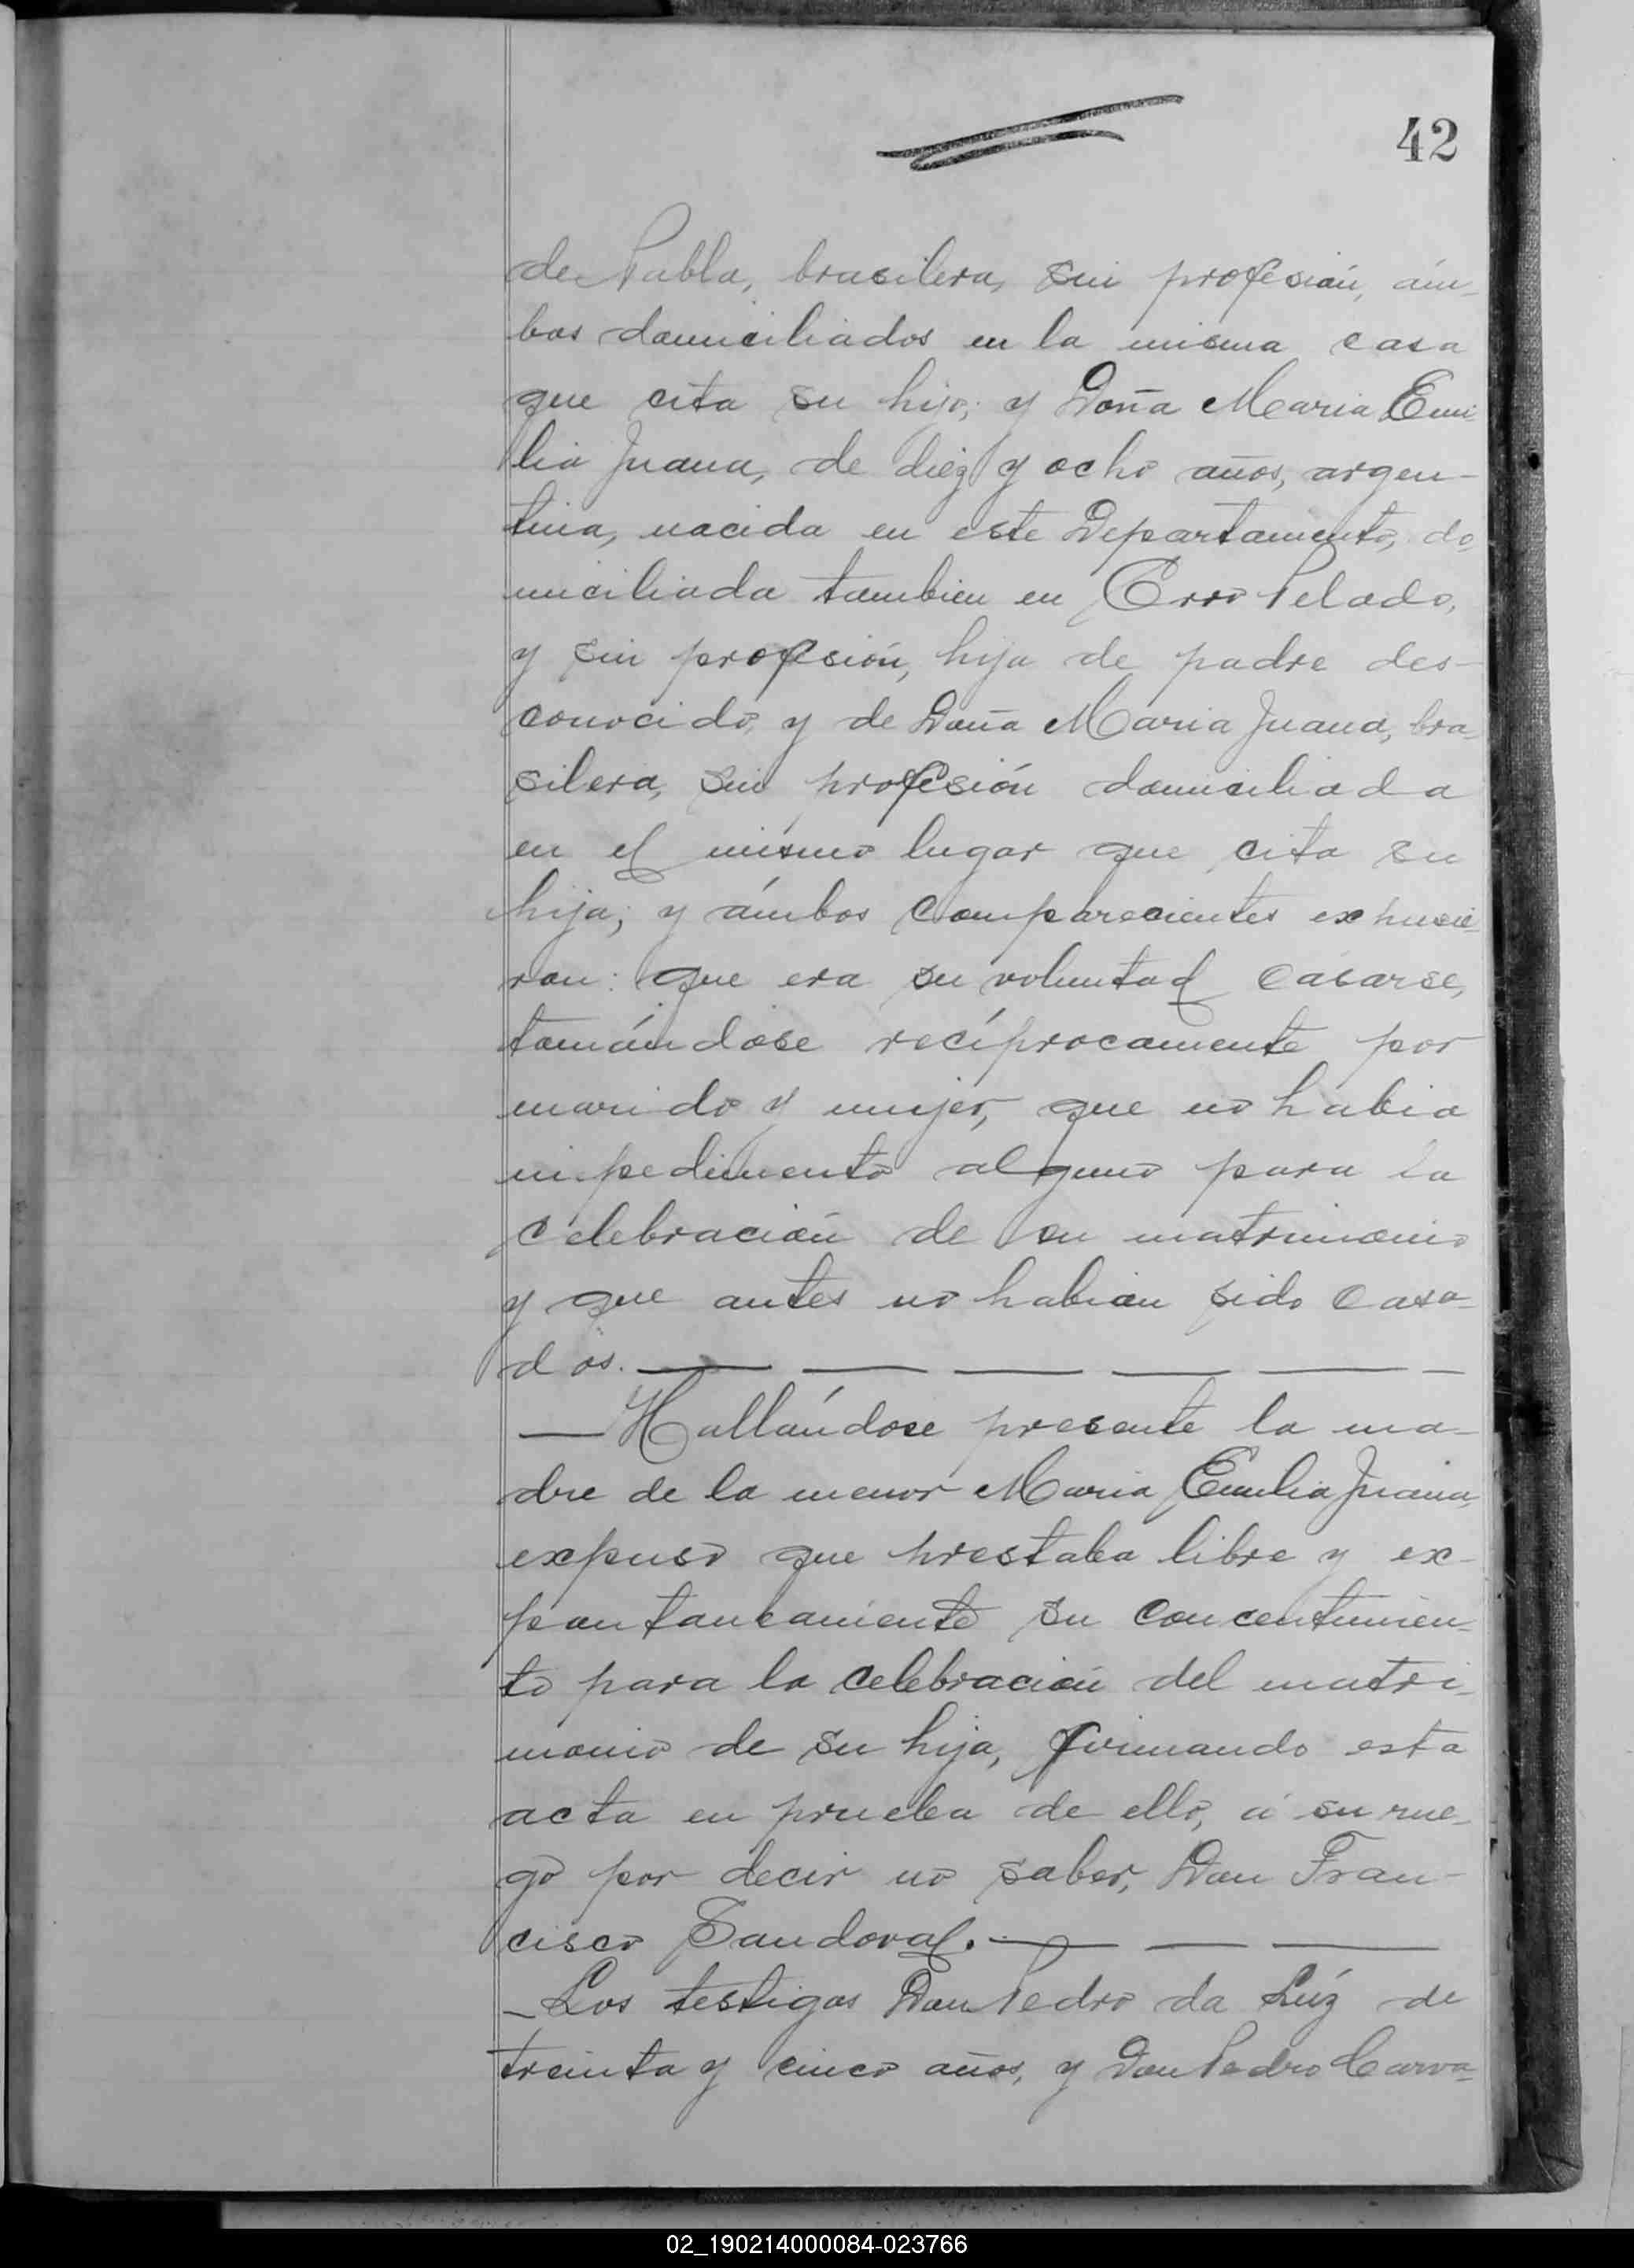 42
de Pabla, brasilera, sin profesión, ám-
bos domiciliados en la misma casa
que cita su hijo; y Doña Maria Emi-
lia Juana, de diez y ocho años, argen-
tina, nacida en este Departamento, do-
miciliada tambien en Erro Pelado,
y sin profesión, hija de padre des-
conocido, y de Doña Maria Juana, bra-
silera, sin profesión domiciliada
en el mismo lugar que cita su
hija; y ámbos comparecientes expusie-
ron: que era su voluntad casarse,
tomándose recíprocamente por
marido y mujer, que no habia
impedimento alguno para la
celebración de su matrimonio
y que antes no habian sido casa-
dos.
— Hallándose presente la ma-
dre de la menor Maria Emilia Juana,
expuso que prestaba libre y ex-
pontaneamente su concentimien-
to para la celebración del matri-
monio de su hija, firmando esta
acta en prueba de ello, á su rue-
go por decir no saber, Don Fran-
cisco Sandoval.
— Los testigos Don Pedro da Lúz de
treinta y cinco años, y Don Pedro Carva-
02_190214000084-023766